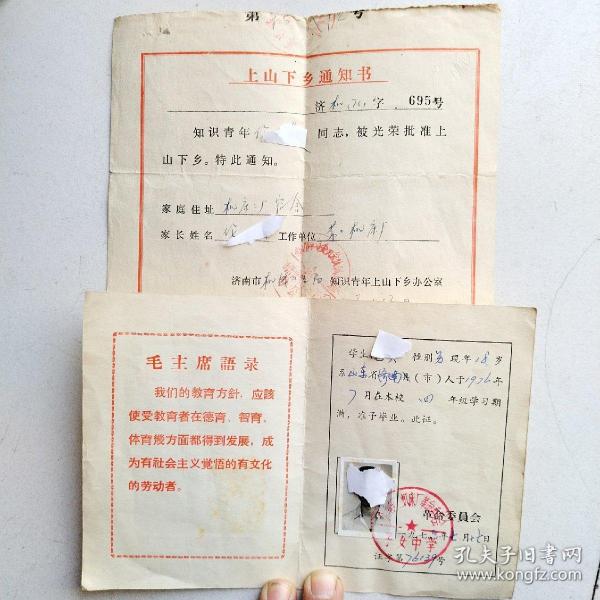 第 号
上山下乡通知书
济机 字 695号
知识青年 同志，被光荣批准上
山下乡。特此通知。
家庭住址 机床二厂宿舍
家长姓名 工作单位 第二机床厂
济南市 知识青年上山下乡办公室
毛主席語录
我们的教育方針，应該
使受教育者在德育、智育、
体育幾方面都得到发展，成
为有社会主义覚悟的有文化
的劳动者。
毕业 性别 男 现年 18 岁
系 山东 省 济南 县（市）人于 1976 年
7 月在本校 四 年级学习期
满，准予毕业。此证。
革命委員会
一九七 年七月 日
证字第 76139 号
孔夫子旧书网
www.kongfz.com